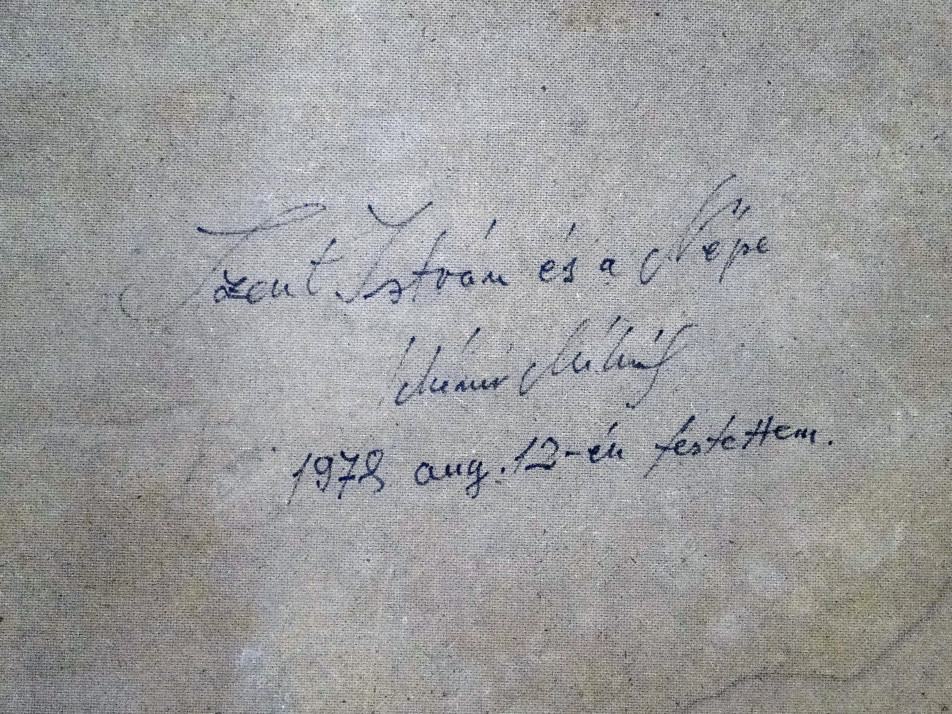 Szent István és a Népe
Mihály
1978 aug. 12-én festettem.